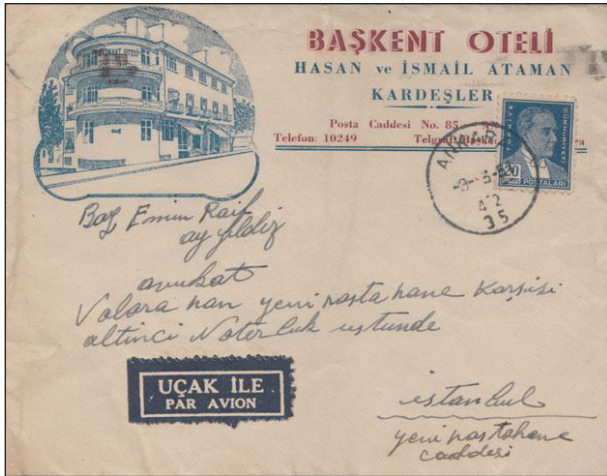 BAŞKENT OTELİ
HASAN ve İSMAİL ATAMAN
KARDEŞLER
Posta Caddesi No. 85
Telefon: 10249 Telgraf: Başke
TÜRKİYE CUMHURİYETİ
20
POSTALARI
ANKARA
35
Bay Emin Raif
ay yıldız
avukat
han yeni postahane karşısı
altıncı Noterluk üstünde
UÇAK İLE
PAR AVION
istanbul
yeni postahane
caddesi